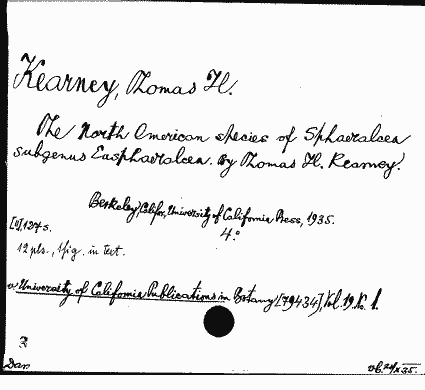 Kearney, Thomas H.
The North American species of Sphaeralcea
subgenus Eusphaeralcea. By Thomas H. Kearney.
Berkeley, Califor., University of California Press, 1935.
4.°
127 s.
12 pls., 1 fig. in text.
University of California Publications in Botany [79434], Vol. 19. No. 1.
Dan